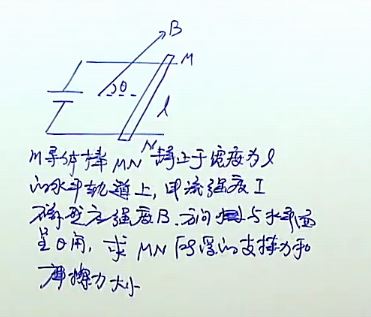 B
M
θ
l
N
m导体棒MN静止于宽度为l
的水平轨道上,电流强度I
磁感应强度B.方向与水平面
呈θ角,求MN所受的支持力和
摩擦力大小